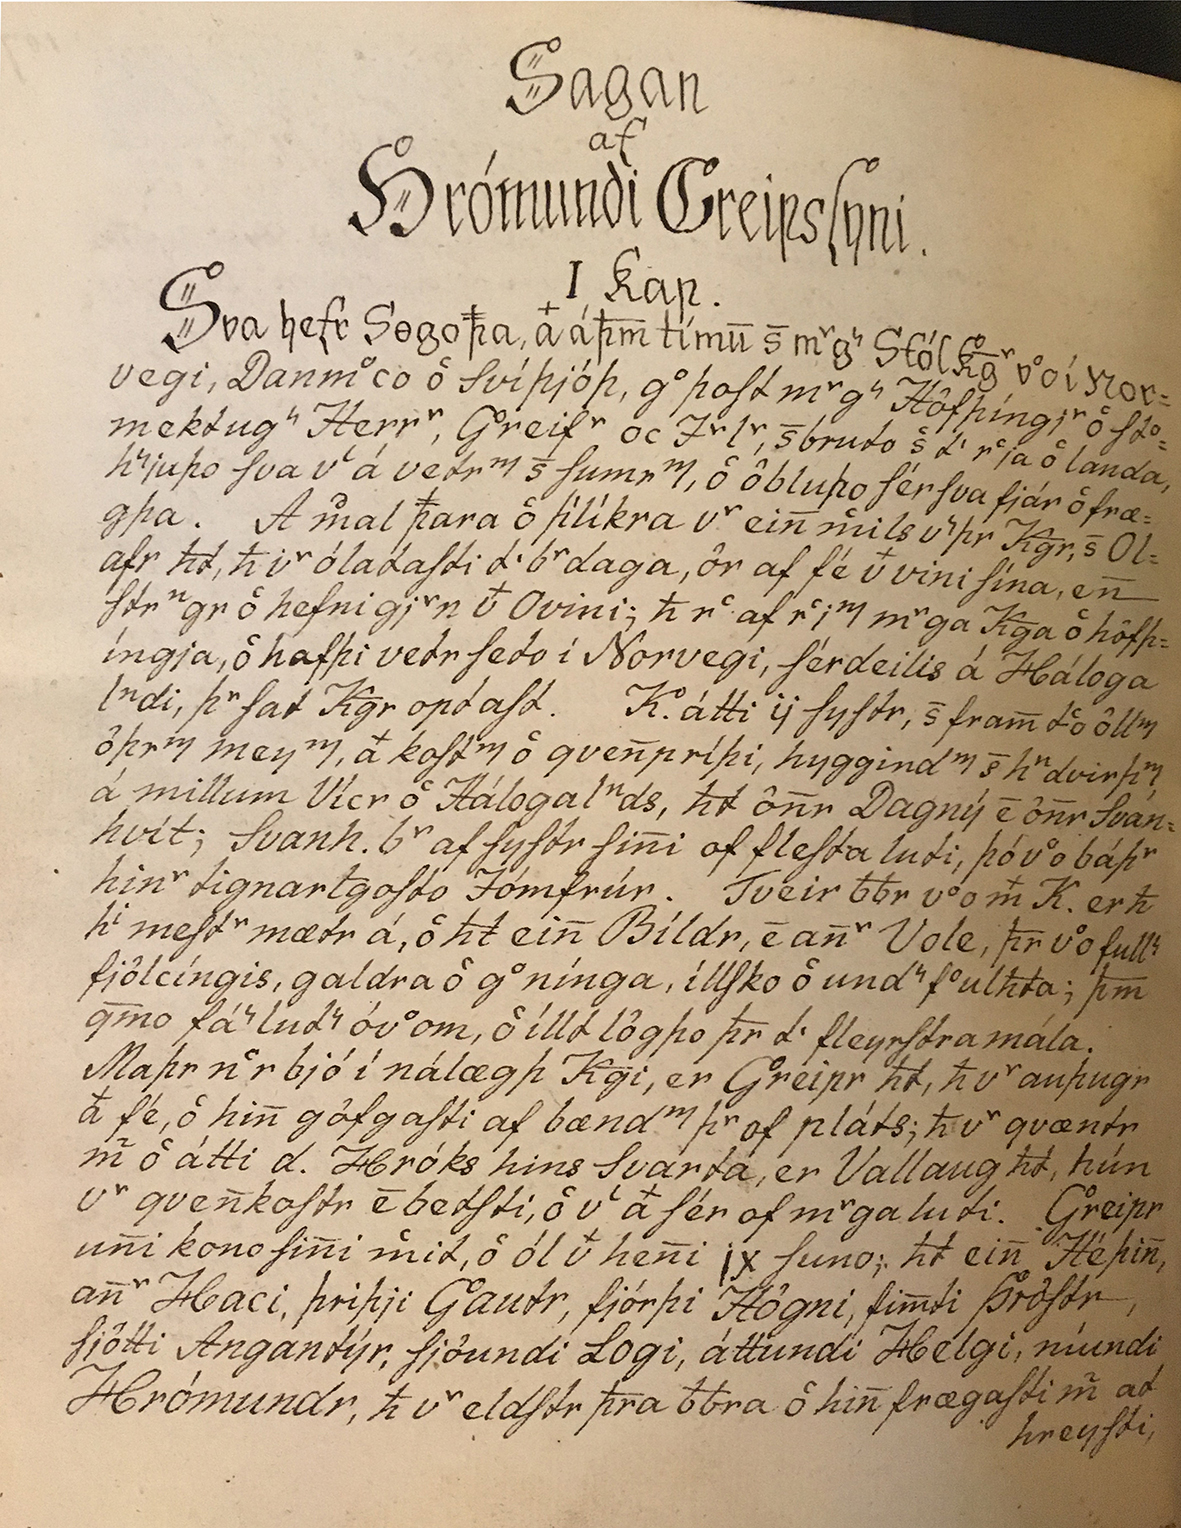 Sagan
af
Hrómundi Greipssyni.
I Kap.
Sva hefr Sögoþa, á þm̄ tímū s̄ mʳgˢ Stól Kg̅ʳ vͦo í Nor=
vegi, Danmͦco ͦo Svíþjóþ, gͦ þoſt mʳgˢ Höfþíngjʳ ͦo ſtͦo=
mektugˢ Herrʳ, Greifʳ oc Jʳlʳ, s̄ bruto landa,
sva á vetrᵐ s̄ sumrᵐ, ͦo öbluþo sér sva fjár ͦo fræ=
gþa. A mͤal þara ͦo þílíkra vʳ ein̄ Kg̅r, s̄ Ol=
afr ħt, ħ vʳ ólataſti bʳdaga, ör af fé vini sína, en̄
ſtrⁿgr ͦo hefnigjʳn Ovini; ħ af mʳga Kg̅a ͦo höfþ=
íngja, ͦo hafþi vetrſeto í Norvegi, ſérdeilis á Háloga
lⁿdi, þʳ sat Kg̅r optaſt. K. átti ij ſyſtr, s̄ fram̄ tͦo öllᵐ
öþrᵐ meyᵐ, koſtᵐ ͦo qven̄príþi, hyggindᵐ s̄ hⁿdvirþᵐ,
á millum Vícr ͦo Hálogalⁿds, ħt ön̄r Dagný ē ön̄r Sván=
hvít; Svanh. bʳ af ſyſtr ſin̄i of fleſta luti, þó vͦo báþʳ
hinʳ tignar Jómfrúr. Tveir ƀƀr vͦo K. er ħ
meſtʳ mætr á, ͦo ħt ein̄ Bíldr, ē an̄ʳ Vole, þr vͦo fullˢ
fjölcíngis, galdra ͦo gͦnínga, íllſko ͦo undˢ þm̄
q̄mo fáˢ lutˢ óvͦom, ͦo íllt lögþo þr fleyrſtra mála.
Maþr nͦr bjó í nálægþ Kg̅i, er Greipr ħt, ħ vʳ auþugr
fé, ͦo hin̄ göfgaſti af bændᵐ þʳ of pláts; ħ vʳ qvæntr
m̃ ͦo átti d. Hróks hins Svarta, er Vallaug ħt, hún
vʳ qven̄koſtr ē betſti, ͦo sér of mʳga luti. Greipr
un̄i kono ſin̄i mit, ͦo ól hen̄i ix ſuno; ħt ein̄ Héþin̄,
an̄ʳ Haci, þriþji Gautr, fjórþi Högni, fim̄ti Þröſtr,
ſjötti Angantýr, ſjöundi Logi, áttundi Helgi, níundi
Hrómundr, ħ vʳ eldſtr þra ƀƀra ͦo hin̄ frægaſti m̃ at
hreyſti,